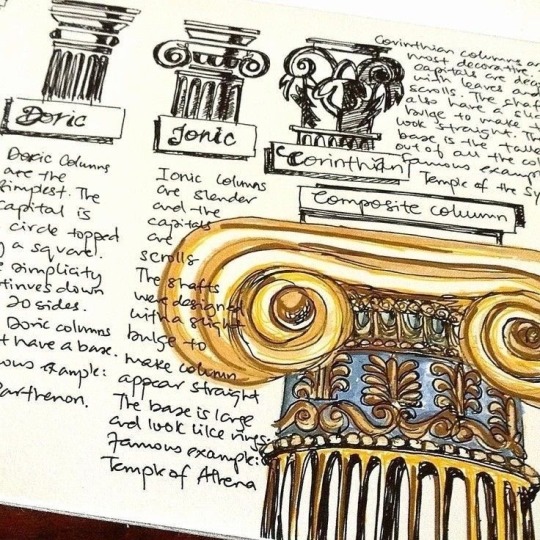 Doric
Doric Columns
are the
simplest. The
capital is
circle topped
a square.
simplicity
down
20 sides.
Doric columns
have a base.
example:
Parthenon.
Ionic
Ionic columns
are slender
and the
capitals
are
scrolls
The shafts
were designed
with a slight
bulge to
make column
appear straight
The base is large
and look like rings.
Famous example:
Temple of Athena
Corinthian
Corinthian columns
most decorative.
capitals are
with leaves and
scrolls. The
also have a
bulge to make
look straight.
base is the
out of all the
Famous
Temple of the
Composite column